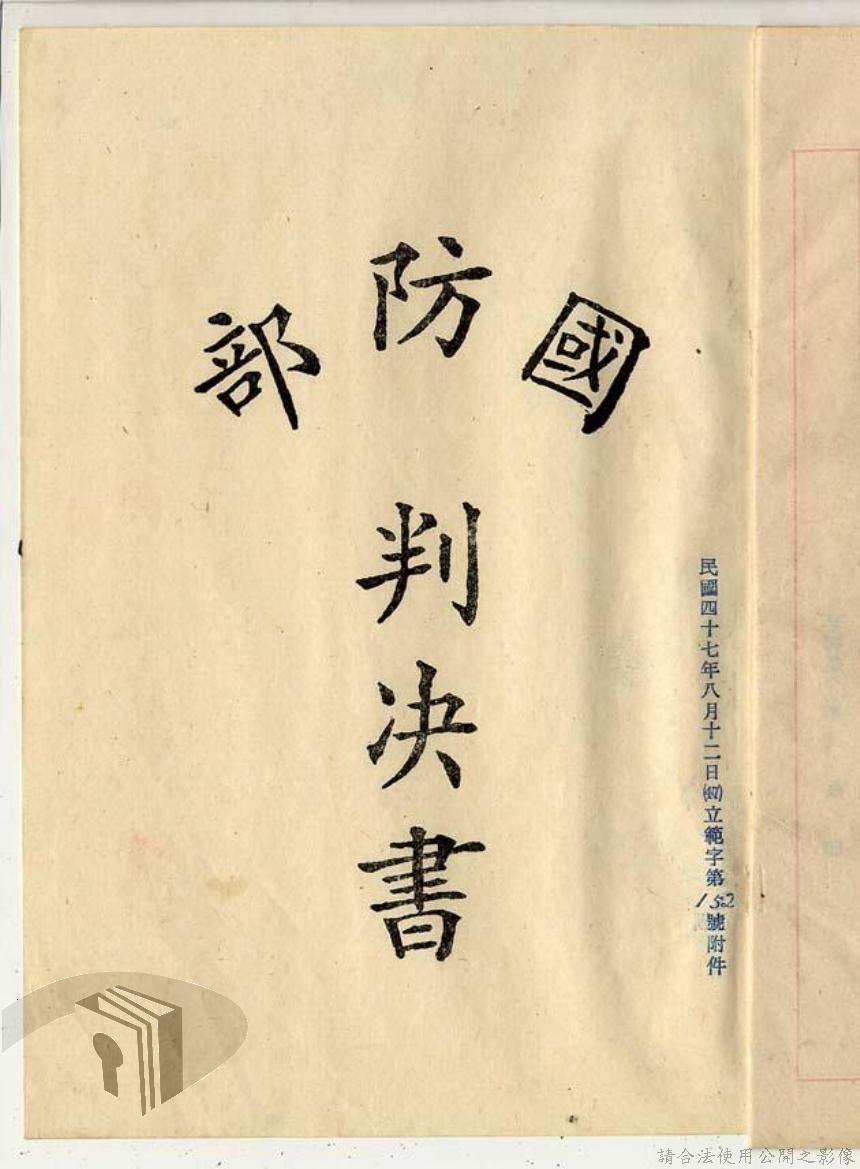 國防部
判決書
民國四十七年八月十二日(47)立範字第152號附件
請合法使用公開之影像